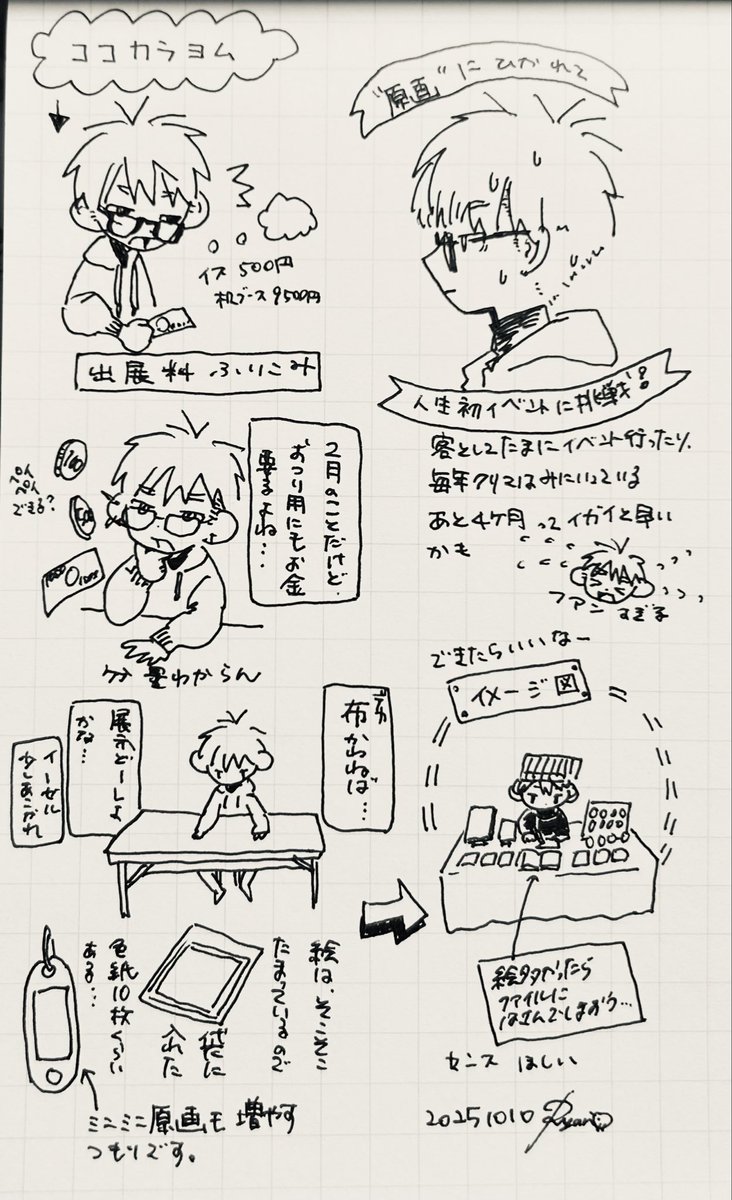 ココカラヨム
"原画"にひかれて
イス 500円
机ブース 9500円
出展料ふりこみ
人生初イベントに挑戦!
客としてたまにイベント行ったり、
毎年クリマはみにいっている
あと4ケ月 って イガイと早い
かも
ファン すぎる
ペイ
ペイ
できる?
100
500
1000
2月のことだけど、
おつり用にもお金
要るよね…
分量わからん
できたらいいなー
イメージ図
布かわねば…
展示どーしよ
かな…
イーゼル
少しあこがれ
絵は、そこそこ
たまっているので
袋に
入れた
色紙10枚くらい
ある…
ミニミニ原画も増やす
つもりです。
絵多かったら
ファイルに
はさんでしまおう…
センス ほしい
20251010